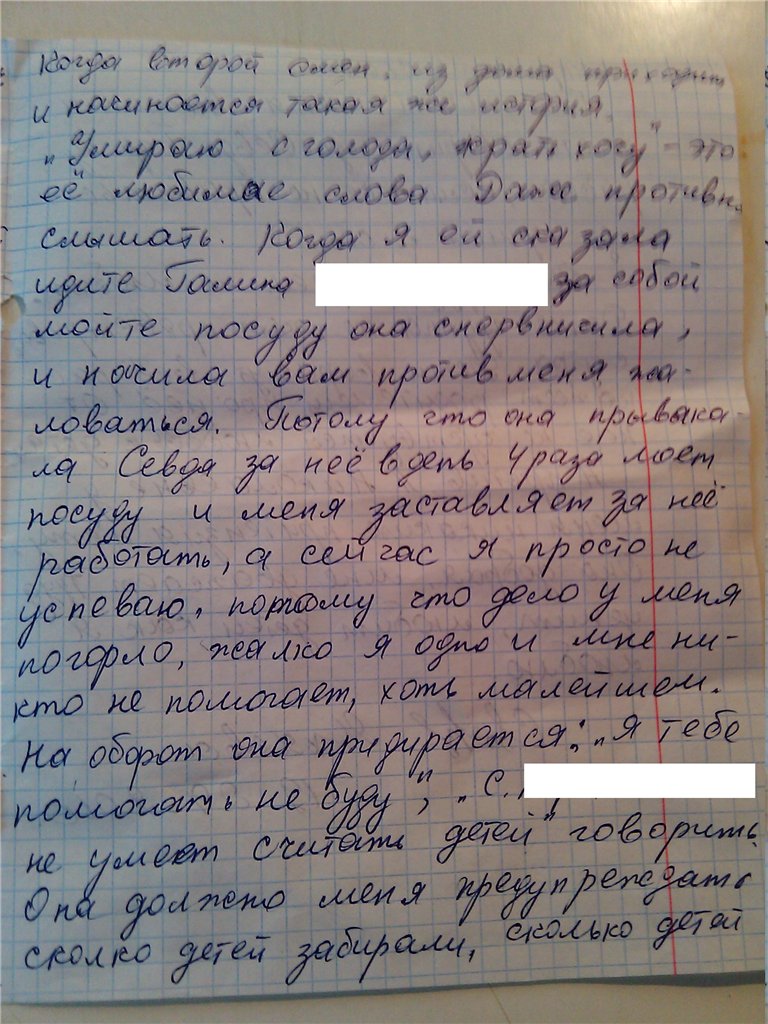 Когда второй смен. из дома приходит
и начинается такая же история.
„Умираю с голода, жрать хочу" – это
её любимые слова Даже противно
слышать. Когда я ей сказала
идите Галина за собой
мойте посуду она снервничила,
и начила вам против меня жа-
ловаться. Потому что она прывыка-
ла Севда за неё вдень 4 раза моет
посуду и меня заставляет за неё
работать, а сейчас я просто не
успеваю, потому что дело у меня
погорло, жалко я одно и мне ни-
кто не помогает, хоть малейшем.
На оборот она придирается: „Я тебе
помогать не буду", „С.
не умеет считать детей" говорить.
Она должно меня предупреждать
сколко детей забирали, сколько детей